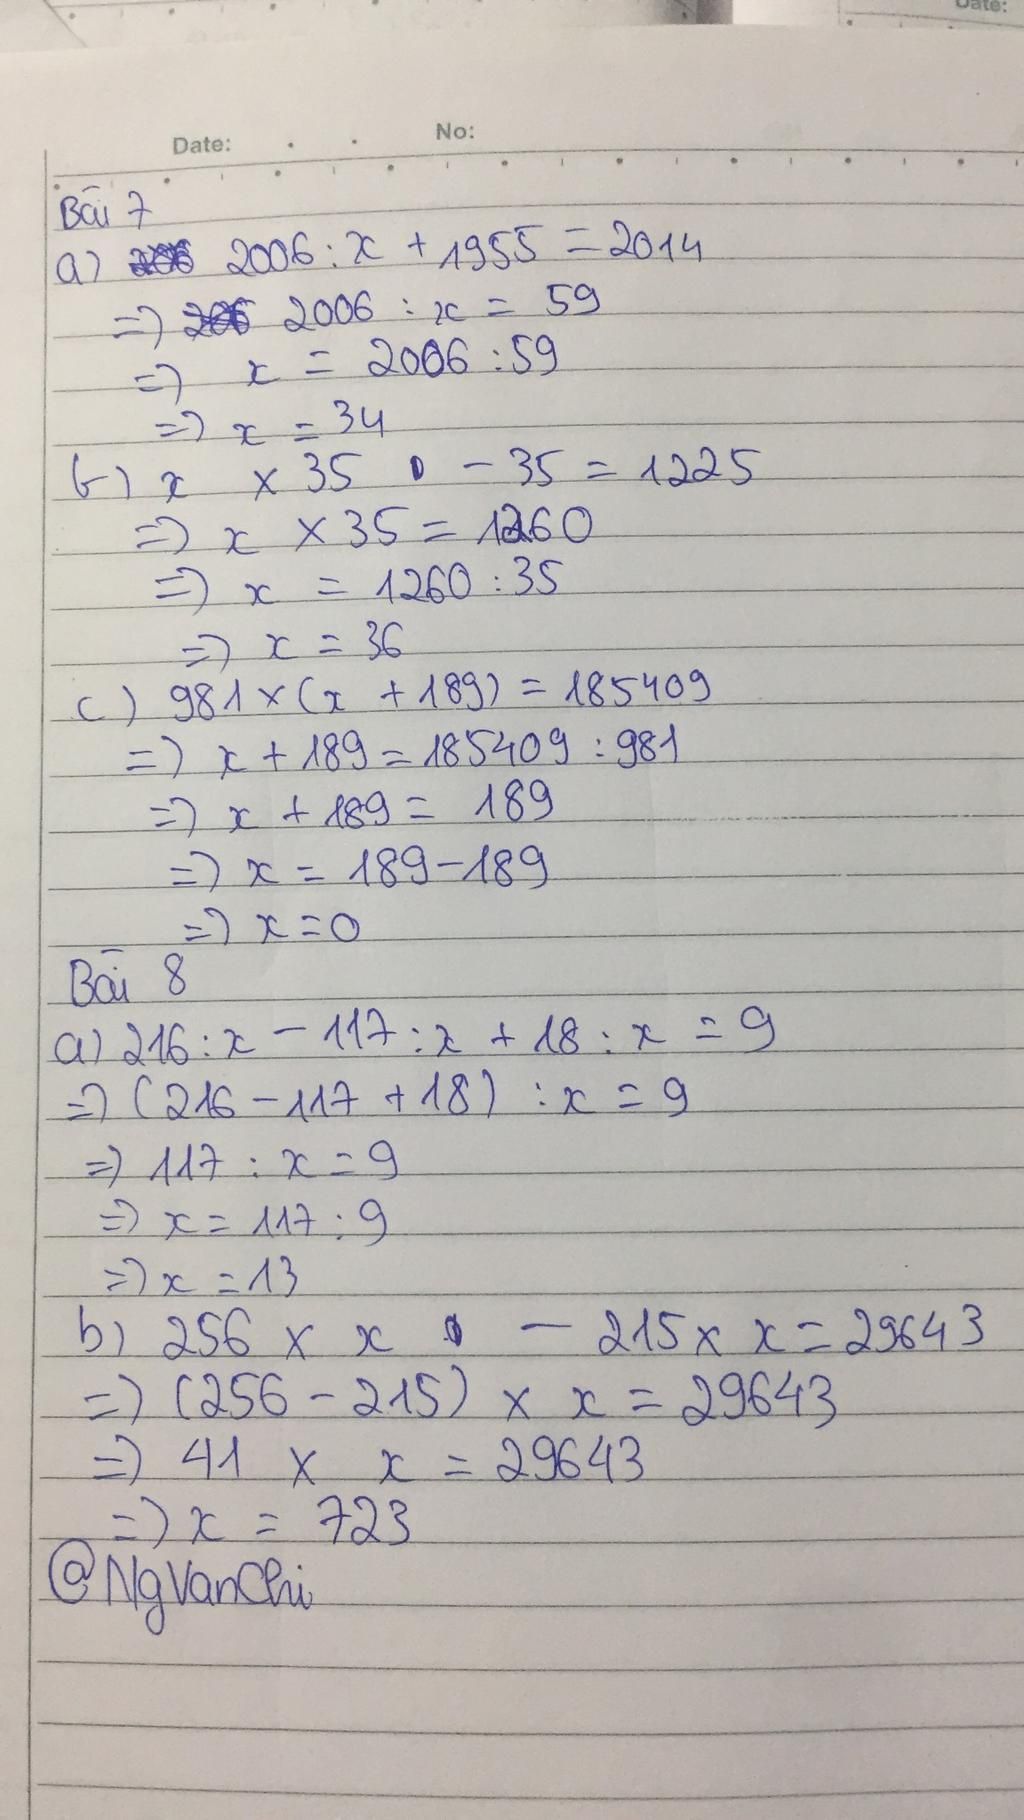 Date:
Date: No:
Bài 7
a) 2006 : x + 1955 = 2014
=> 2006 : x = 59
=> x = 2006 : 59
=> x = 34
b) x × 35 - 35 = 1225
=> x × 35 = 1260
=> x = 1260 : 35
=> x = 36
c) 981 × (x + 189) = 185409
=> x + 189 = 185409 : 981
=> x + 189 = 189
=> x = 189 - 189
=> x = 0
Bài 8
a) 216 : x - 117 : x + 18 : x = 9
=> (216 - 117 + 18) : x = 9
=> 117 : x = 9
=> x = 117 : 9
=> x = 13
b) 256 × x - 215 × x = 29643
=> (256 - 215) × x = 29643
=> 41 × x = 29643
=> x = 723
@NgVanChi